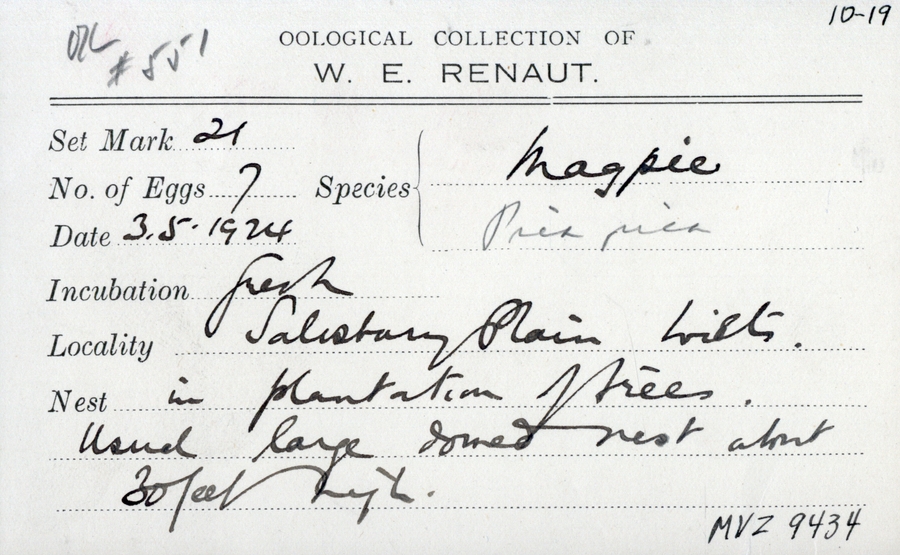 10-19
#551
OOLOGICAL COLLECTION OF
W. E. RENAUT.
Set Mark 21
No. of Eggs 7 Species Magpie
Pica pica
Date 3.5.1924
Incubation fresh
Locality Salisbury Plain Wilts.
Nest in plantation of trees.
Usual large domed nest about
30 feet high.
MVZ 9434